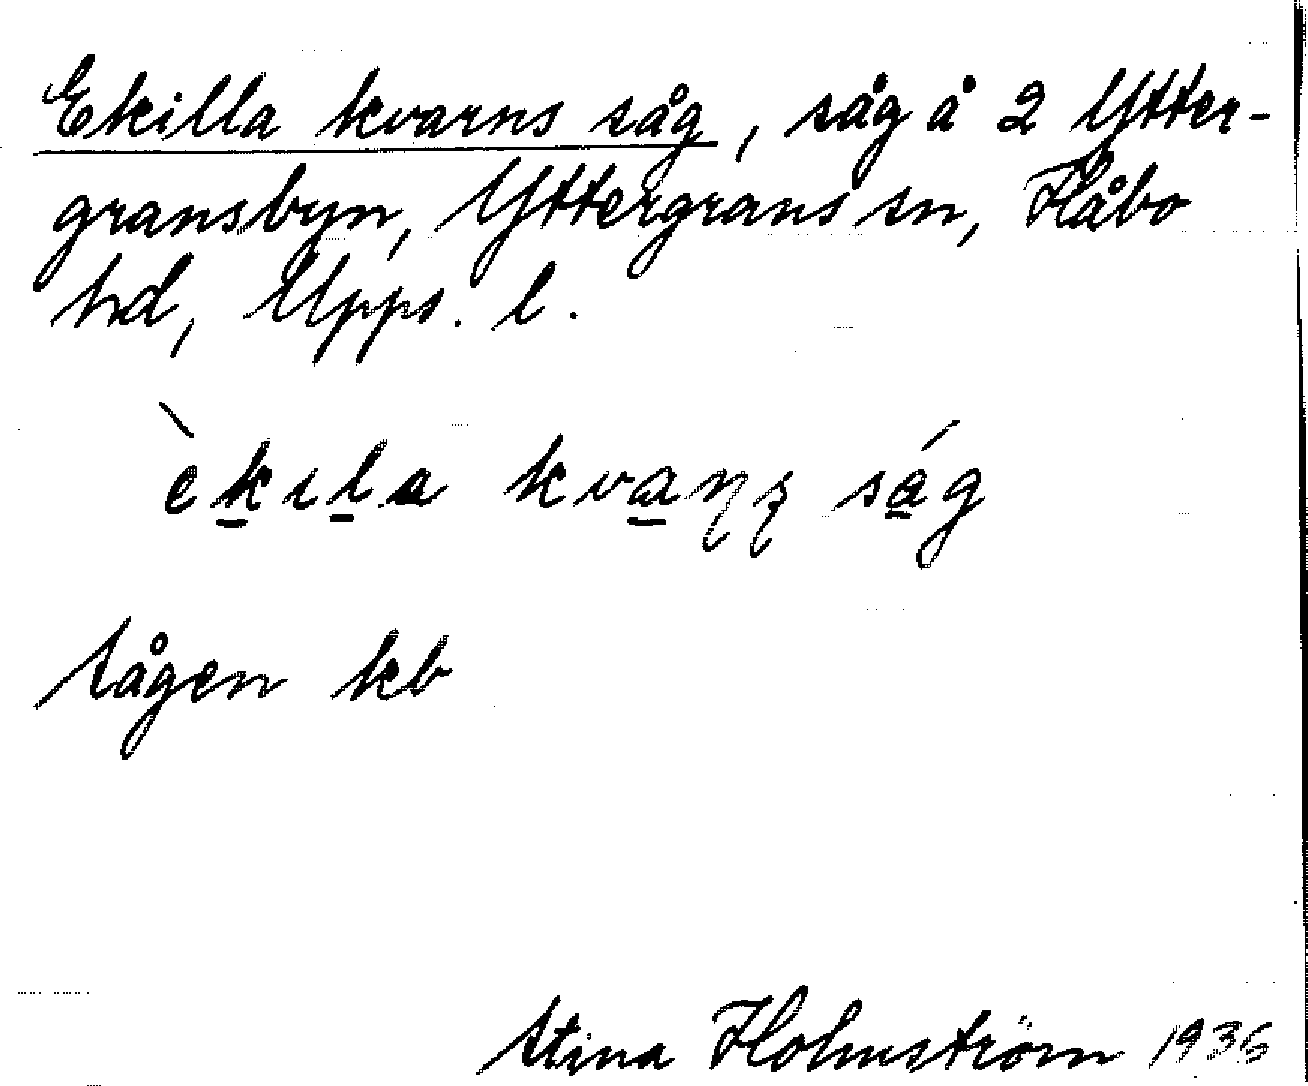 Ekilla kvarns såg, såg å 2 Ytter-
gransbyn, Yttergrans sn, Håbo
hd, Upps. l.
Sågen kb
Stina Holmström 1936